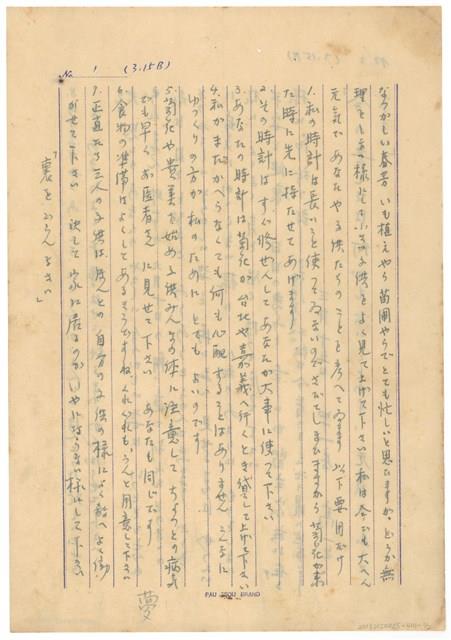 No. 1 (3.15B)
なつかしい春芳 いも植えやら苗圃やらでとても忙しいと思ひますが、どうか無
理をしない様にして 小さい子供をよく見て上げて下さい 私は今でも大へん
元気で あなたや子供たちのことを考へてゐます 以下要用だけ
1.私の時計は長いこと使つてゐないのでさびてしまひますから 菊花が来
た時に先に持たせてあげます
2.その時計はすぐ修ぜんしてあなたが大事に使つて下さい
3.あなたの時計は菊花が台北や嘉義へ行くとき貸して上げて下さい
4.私がまだかへらなくても何も心配することはありません こんなに
ゆつくりの方が私のためにとてもよいのです
5.菊花や貴美を始め子供みんなの体に注意して ちよつとの病気
でも早くお医者さんに見せて下さい あなたも同じです
6.食物の準備はよくしてあるさうですね、くれぐれも、うんと用意して下さい
7.正直な三人の子供はほんとの自分の子供の様によく教へよく働
かせて下さい 決して家に居るのがいやにならない様にして下さい
「裏をごらんなさい」
夢
PAU TSOU BRAND